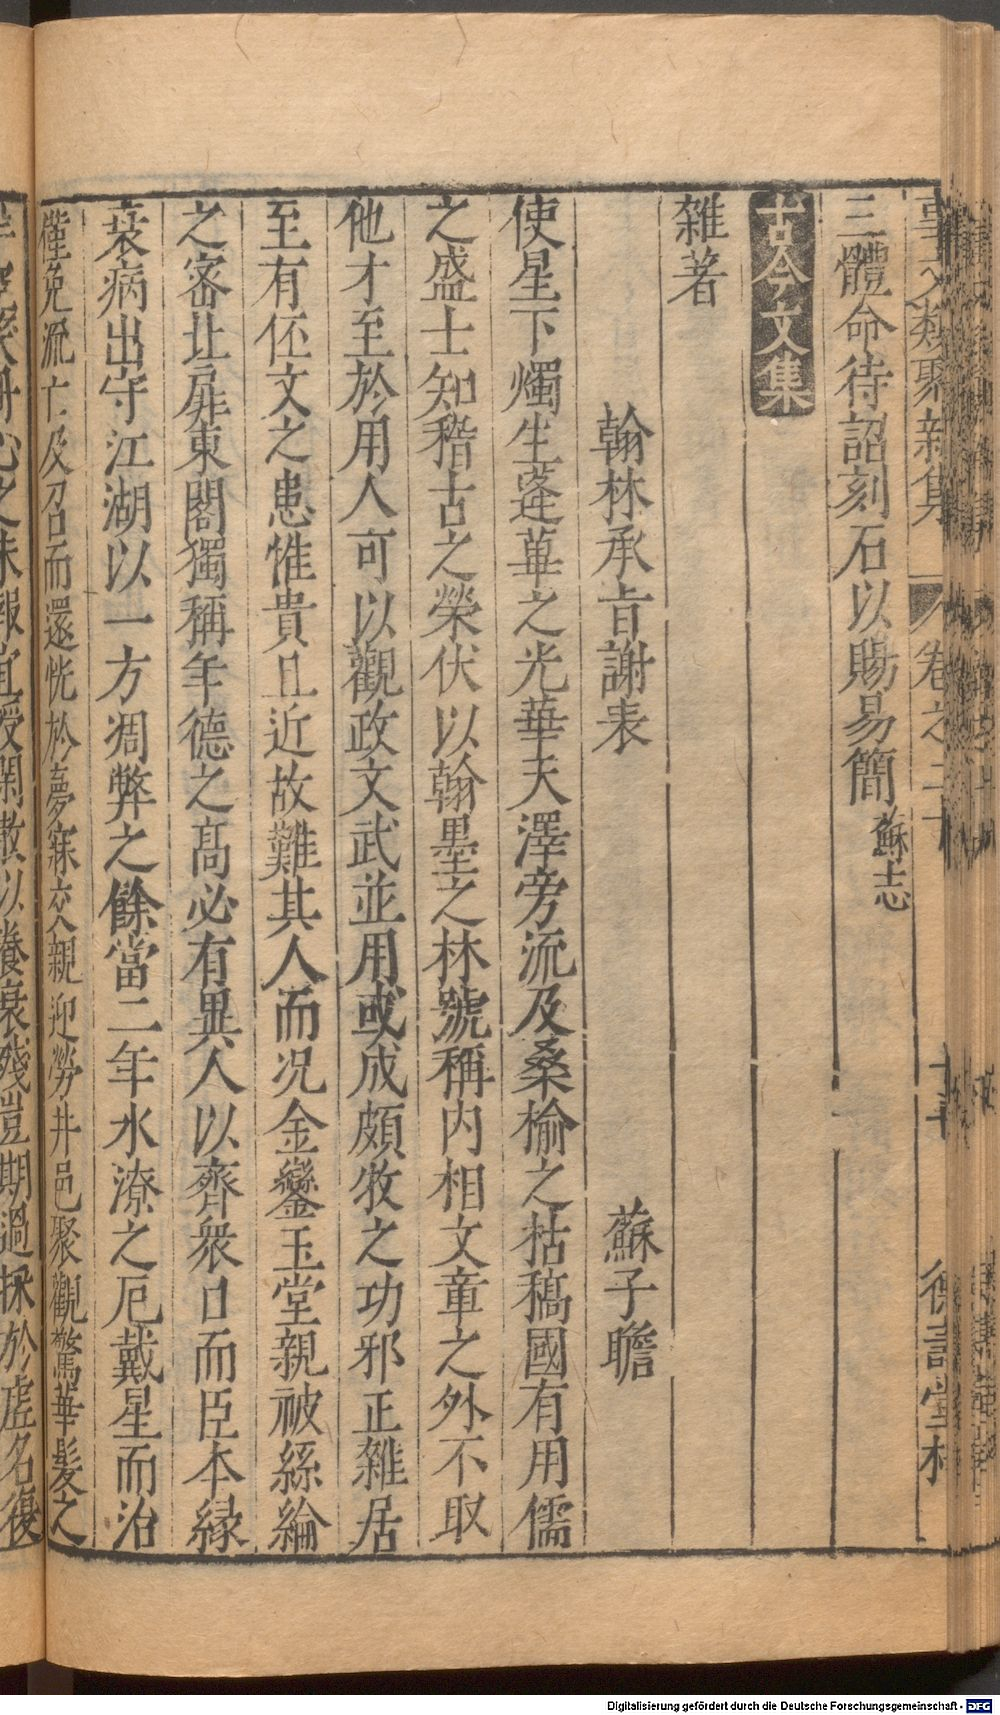 事文類聚新集 卷之二十 十二 德壽堂梓
三體命待詔刻石以賜易簡 蘇志
古今文集
雜著
翰林承旨謝表 蘇子瞻
使星下燭生蓬蓽之光華天澤旁流及桑榆之枯稿國有用儒
之盛士知稽古之榮伏以翰墨之林號稱内相文章之外不取
他才至於用人可以觀政文武並用或成頗牧之功邪正雜居
至有伾文之患惟貴且近故難其人而况金鑾玉堂親被絲綸
之密北扉東閣獨稱年德之髙必有異人以齊衆口而臣本緣
衰病出守江湖以一方凋弊之餘當二年水潦之厄戴星而治
僅免流亡及召而還恍於夢寐交親迎勞井邑聚觀驚華髮之
心之 報宜授閑散以養衰殘豈期過採於虛名復
Digitalisierung gefördert durch die Deutsche Forschungsgemeinschaft - DFG